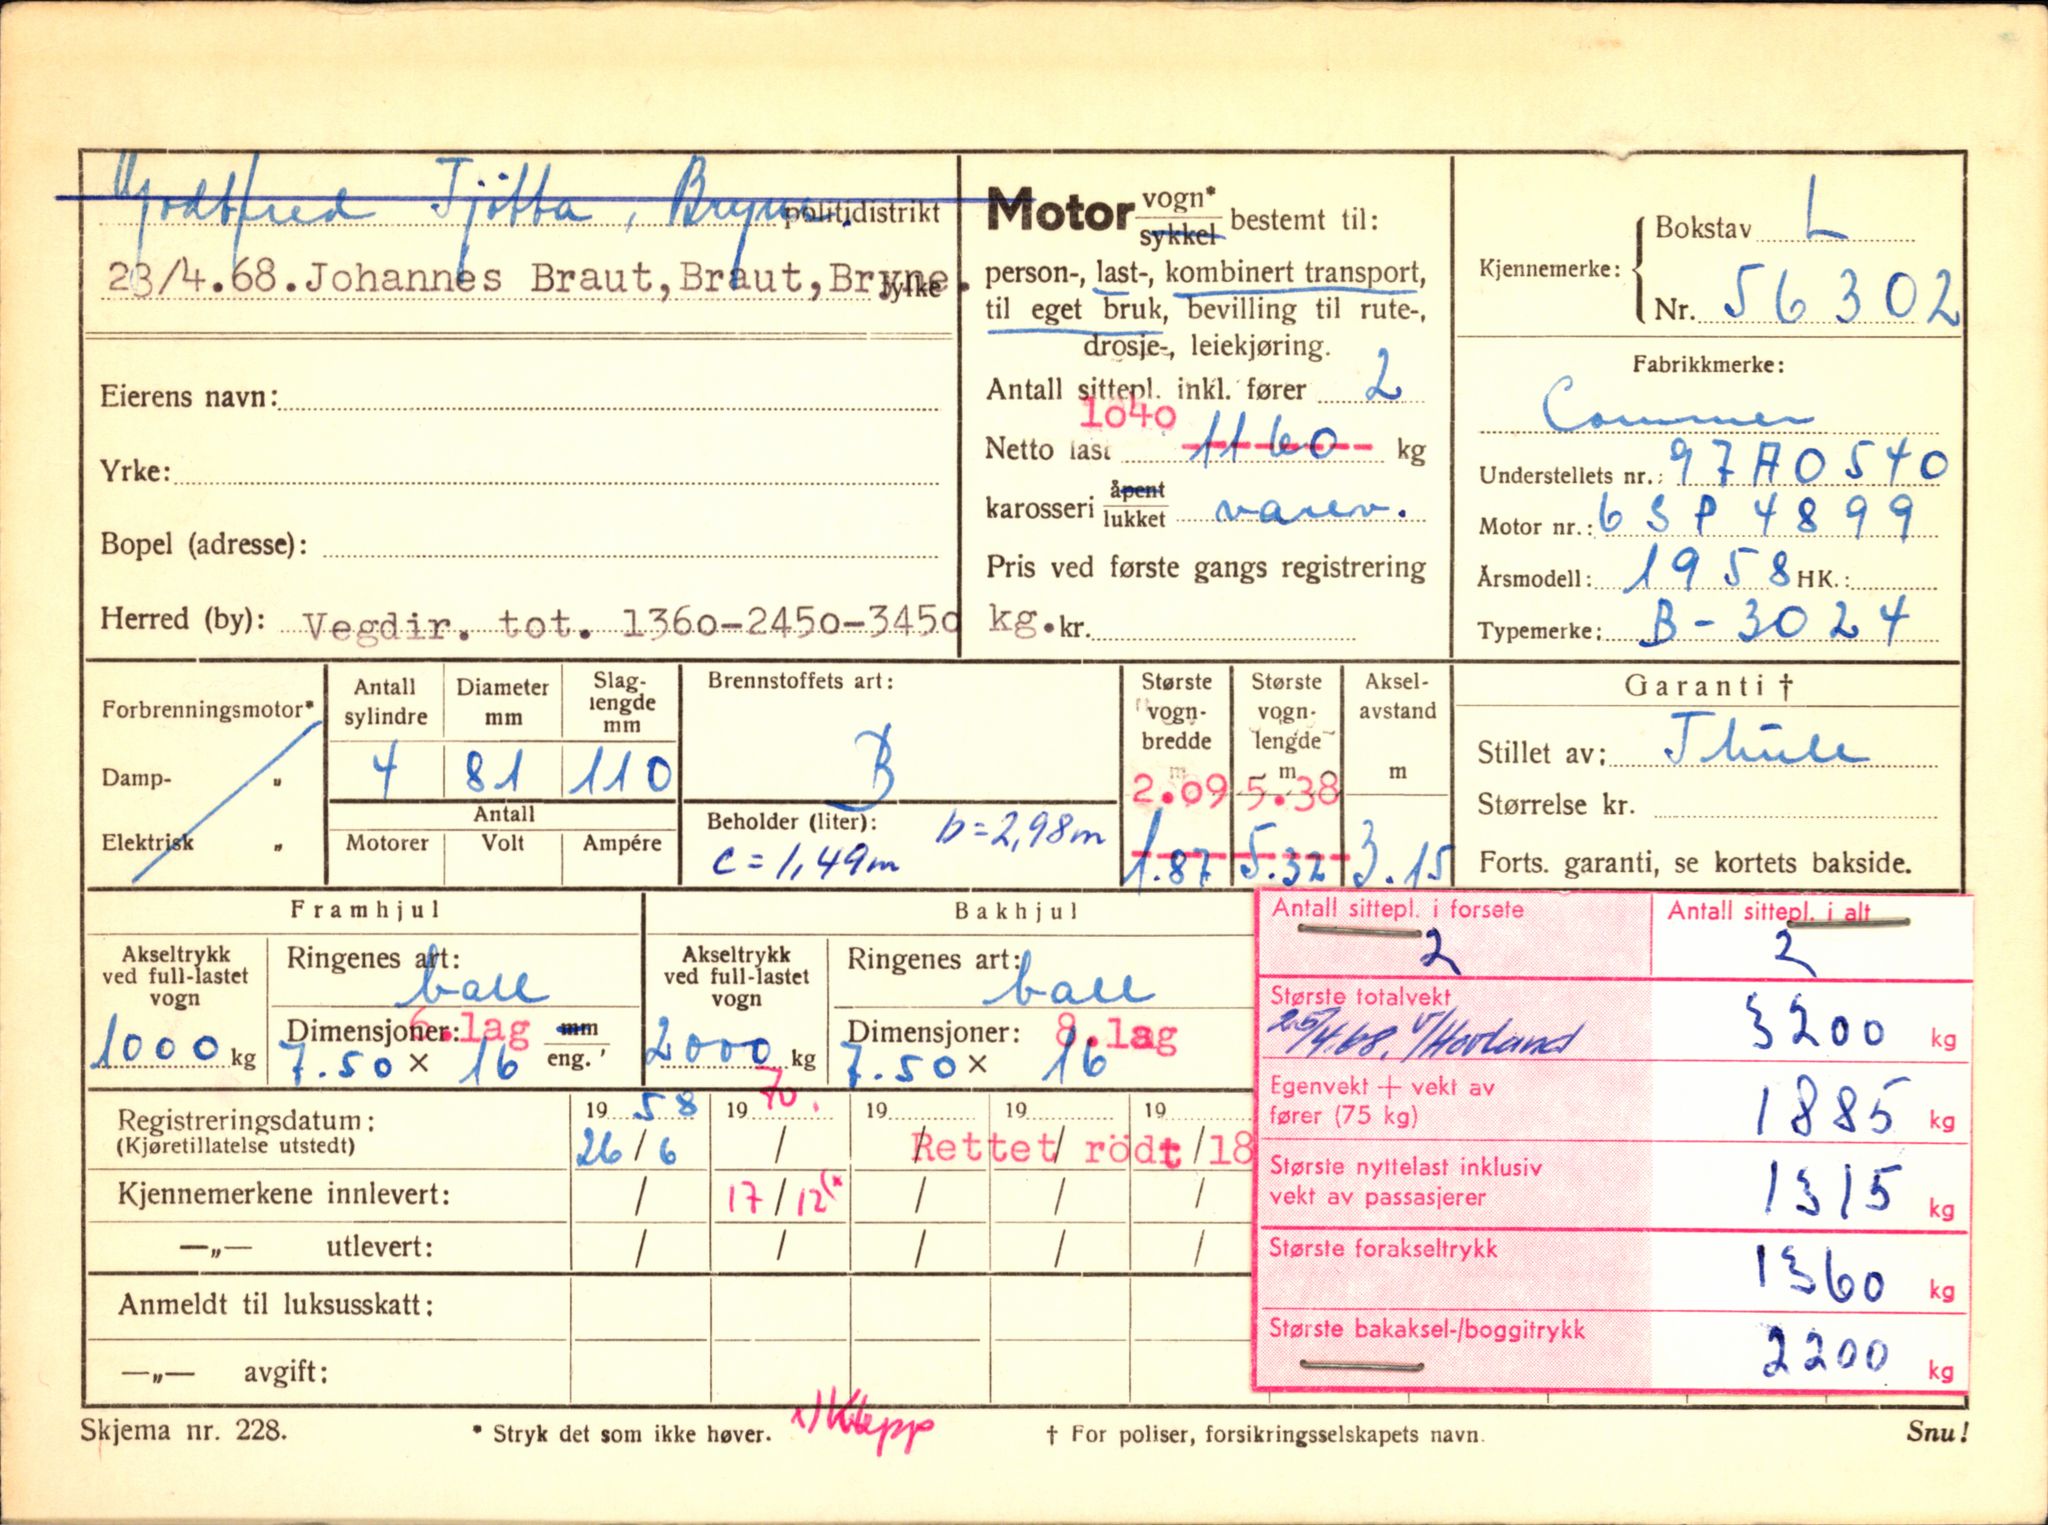 Godtfred Tjötta, Bryne.
politidistrikt
23/4.68. Johannes Braut, Braut, Bryne.
fylke
Eierens navn:
Yrke:
Bopel (adresse):
Herred (by): Vegdir. tot. 1360-2450-3450 kg.
Motor vogn* / sykkel bestemt til:
person-, last-, kombinert transport,
til eget bruk, bevilling til rute-,
drosje-, leiekjøring.
Antall sittepl. inkl. fører 2
1040
Netto last 1160 kg
karosseri åpent / lukket varev.
Pris ved første gangs registrering
kr.
Kjennemerke: Bokstav L
Nr. 56302
Fabrikkmerke:
Commer
Understellets nr.: 97A0540
Motor nr.: 6SP4899
Årsmodell: 1958 HK.:
Typemerke: B-3024
Forbrenningsmotor*
Damp- "
Elektrisk "
Antall sylindre Diameter mm Slag-lengde mm
4 81 110
Antall
Motorer Volt Ampére
Brennstoffets art:
B
Beholder (liter): b=2,98m
c=1,49m
Største vogn-bredde m
2.09
1.87
Største vogn-lengde m
5.38
5.32
Aksel-avstand m
3.15
Garanti †
Stillet av: Thule
Størrelse kr.
Forts. garanti, se kortets bakside.
Framhjul
Akseltrykk ved full-lastet vogn
1000 kg
Ringenes art: ball
Dimensjoner: 6.lag mm / eng."
7.50 × 16
Bakhjul
Akseltrykk ved full-lastet vogn
2000 kg
Ringenes art: ball
Dimensjoner: 8.lag
7.50 × 16
Registreringsdatum: 19 58 19 70. 19 19 19
(Kjøretillatelse utstedt) 26/6 / / / /
Rettet rödt 18
Kjennemerkene innlevert: / 17/12(* / / /
—„— utlevert: / / / / /
Anmeldt til luksusskatt:
—„— avgift:
Antall sittepl. i forsete
2
Antall sittepl. i alt
2
Største totalvekt 3200 kg
25/4.68. V/Hovland
Egenvekt + vekt av
fører (75 kg) 1885 kg
Største nyttelast inklusiv
vekt av passasjerer 1315 kg
Største forakseltrykk 1360 kg
Største bakaksel-/boggitrykk 2200 kg
Skjema nr. 228.
* Stryk det som ikke høver.
x) Klepp
† For poliser, forsikringsselskapets navn.
Snu!